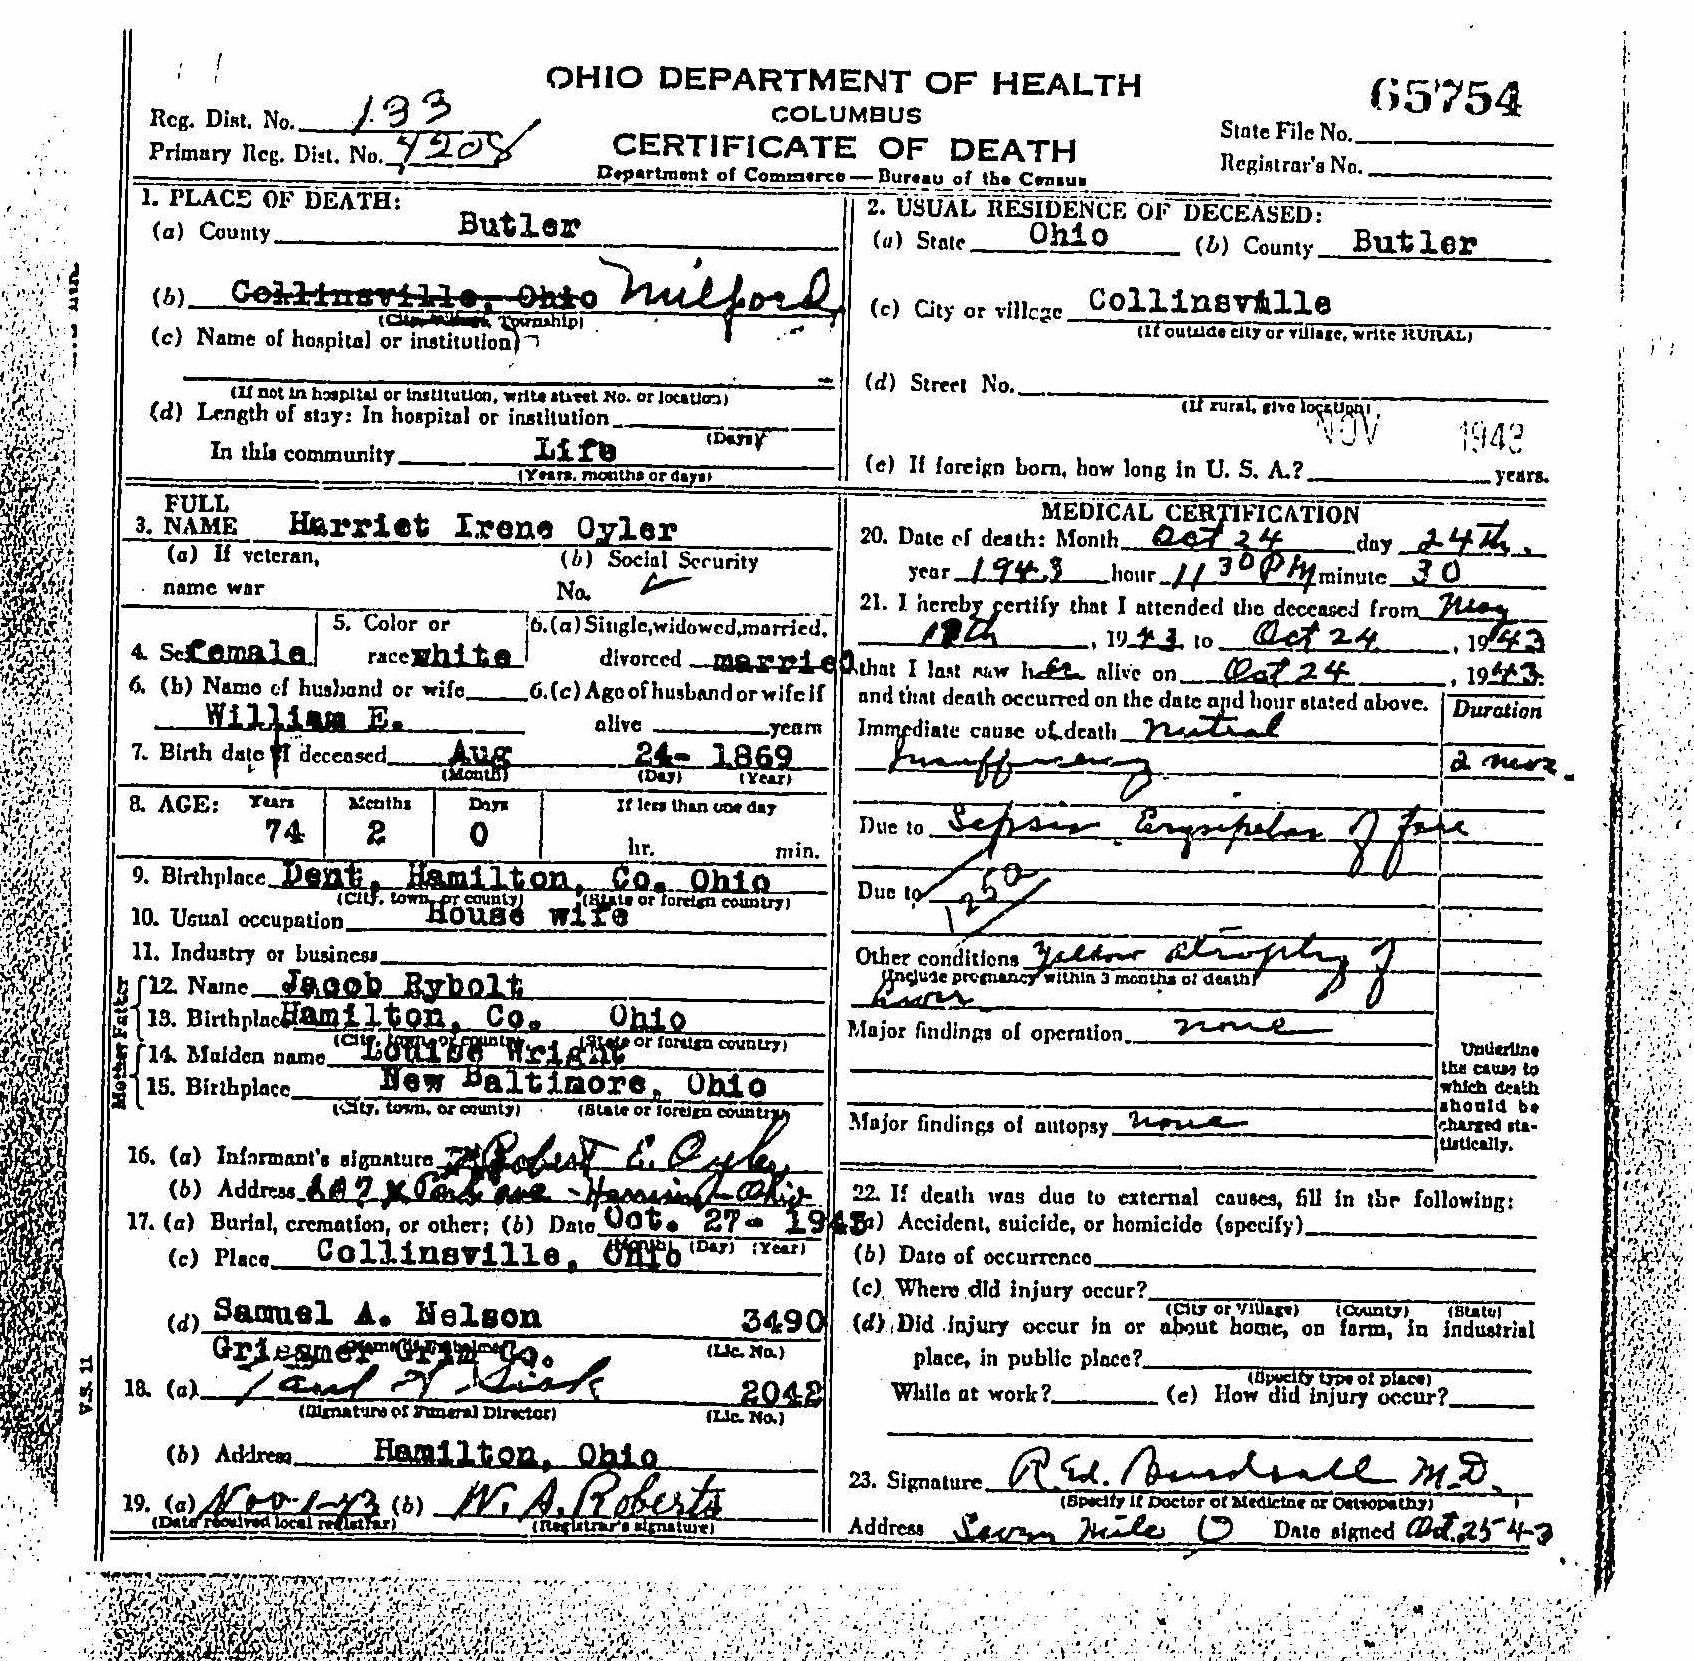 OHIO DEPARTMENT OF HEALTH
COLUMBUS
CERTIFICATE OF DEATH
Department of Commerce — Bureau of the Census
Reg. Dist. No. 133
Primary Reg. Dist. No. 4208
65754
State File No.
Registrar's No.
1. PLACE OF DEATH:
(a) County Butler
(b) Collinsville, Ohio Milford
(City, Village, Township)
(c) Name of hospital or institution
(If not in hospital or institution, write street No. or location)
(d) Length of stay: In hospital or institution
(Days)
In this community Life
(Years, months or days)
2. USUAL RESIDENCE OF DECEASED:
(a) State Ohio (b) County Butler
(c) City or village Collinsville
(If outside city or village, write RURAL)
(d) Street No.
(If rural, give location)
NOV 1943
(e) If foreign born, how long in U. S. A.? years.
3. FULL NAME Harriet Irene Oyler
(a) If veteran, name war
(b) Social Security No.
4. Sex female
5. Color or race white
6. (a) Single, widowed, married, divorced married
6. (b) Name of husband or wife
William E.
6. (c) Age of husband or wife if alive years
7. Birth date of deceased Aug 24- 1869
(Month) (Day) (Year)
8. AGE: Years Months Days If less than one day
74 2 0 hr. min.
9. Birthplace Dent, Hamilton, Co. Ohio
(City, town, or county) (State or foreign country)
10. Usual occupation House wife
11. Industry or business
Father
12. Name Jacob Rybolt
13. Birthplace Hamilton, Co. Ohio
(City, town, or county) (State or foreign country)
Mother
14. Maiden name Louise Wright
15. Birthplace New Baltimore, Ohio
(City, town, or county) (State or foreign country)
16. (a) Informant's signature Robert E. Oyler
(b) Address Park ave - Harrison Ohio
17. (a) Burial, cremation, or other; (b) Date Oct. 27- 1943
(Month) (Day) (Year)
(c) Place Collinsville, Ohio
(d) Samuel A. Nelson 3490
(Name of Embalmer) (Lic. No.)
Griesmer Grim Co.
18. (a) 2042
(Signature of Funeral Director) (Lic. No.)
(b) Address Hamilton, Ohio
19. (a) Nov-1-43 (b) W. A. Roberts
(Date received local registrar) (Registrar's signature)
V.S. 11
MEDICAL CERTIFICATION
20. Date of death: Month Oct 24 day 24th,
year 1943 hour 11 30 PM minute 30
21. I hereby certify that I attended the deceased from May
18th, 1943 to Oct 24, 1943
that I last saw her alive on Oct 24, 1943.
and that death occurred on the date and hour stated above.
Duration
Immediate cause of death Mitral
Insufficiency 2 mos.
Due to Sepsis Erysipelas of face
Due to
1250
Other conditions Yellow atrophy of
(Include pregnancy within 3 months of death)
liver
Major findings of operation none
Major findings of autopsy none
Underline the cause to which death should be charged statistically.
22. If death was due to external causes, fill in the following:
(a) Accident, suicide, or homicide (specify)
(b) Date of occurrence
(c) Where did injury occur?
(City or Village) (County) (State)
(d) Did injury occur in or about home, on farm, in industrial
place, in public place?
(Specify type of place)
While at work? (e) How did injury occur?
23. Signature R. Ed. M.D.
(Specify if Doctor of Medicine or Osteopathy)
Address Seven Mile O Date signed Oct. 25-43